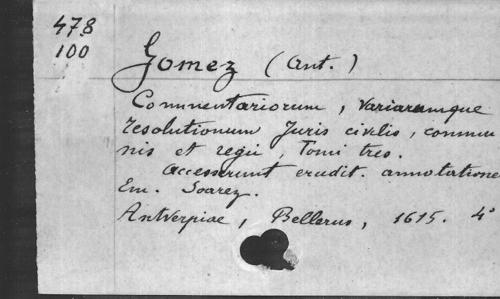 478
100
Gomez (Ant.)
Commentariorum, Variarumque
resolutionum Juris civilis, commu
nis et regii, Tomi tres.
Accesserunt erudit. annotatione
Em. Soarez.
Antverpiae, Bellerus, 1615. 4°